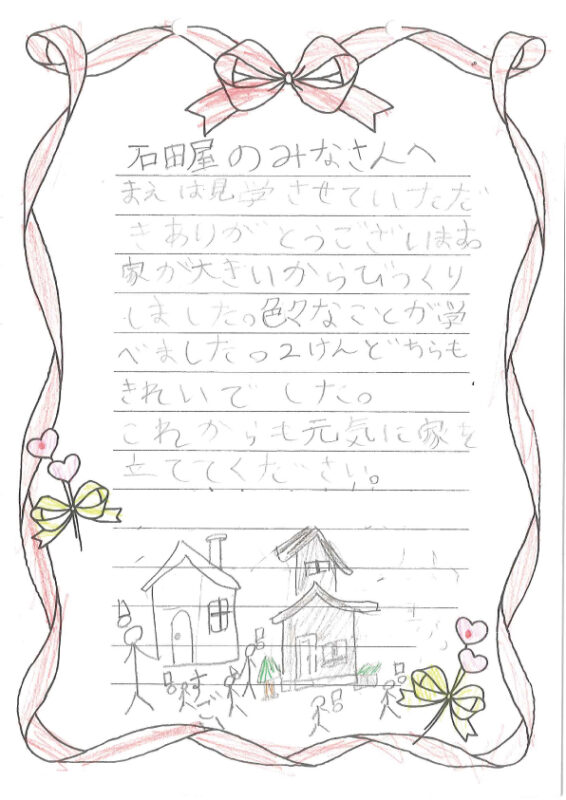 石田屋のみなさんへ
まえは見学させていただ
きありがとうございます
家が大きいからびっくり
しました。色々なことが学
べました。2けんどちらも
きれいでした。
これからも元気に家を
立ててください。
すご